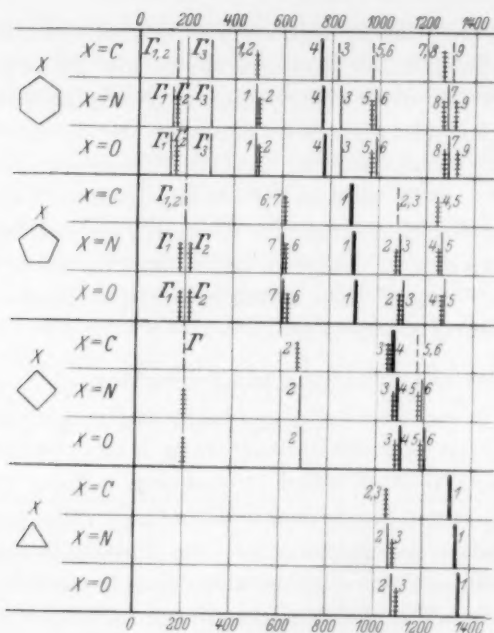 0 200 400 600 800 1000 1200 1400
X
X=C Γ1,2 Γ3 1,2 4 3 5,6 7,8 9
X=N Γ1 Γ2 Γ3 1 2 4 3 5 6 8 7 9
X=O Γ1 Γ2 Γ3 1 2 4 3 5 6 8 7 9
X
X=C Γ1,2 6,7 1 2,3 4,5
X=N Γ1 Γ2 7 6 1 2 3 4 5
X=O Γ1 Γ2 7 6 1 2 3 4 5
X
X=C Γ 2 3 4 5,6
X=N 2 3 4 5 6
X=O 2 3 4 5 6
X
X=C 2,3 1
X=N 2 3 1
X=O 2 3 1
0 200 400 600 800 1000 1200 1400